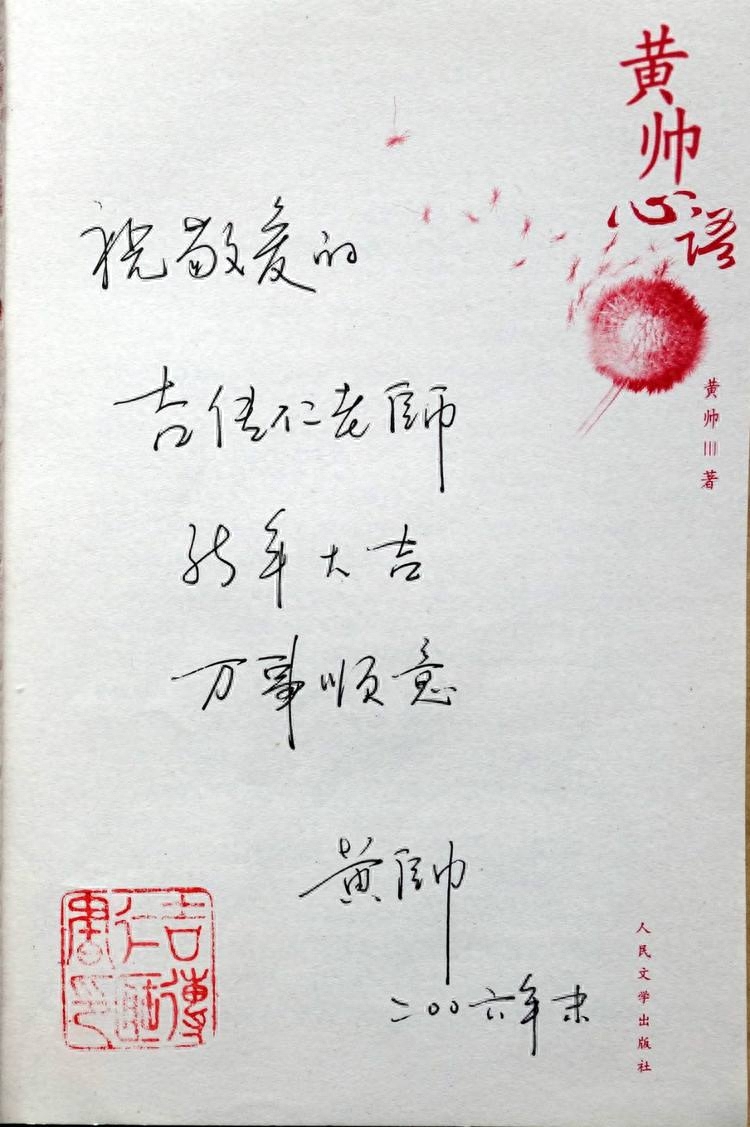 黄帅
心语
黄帅 著
祝敬爱的
吉传仁老師
新年大吉
万事顺意
黄帥
二〇〇六年末
吉傳
仁
書印
人民文学出版社